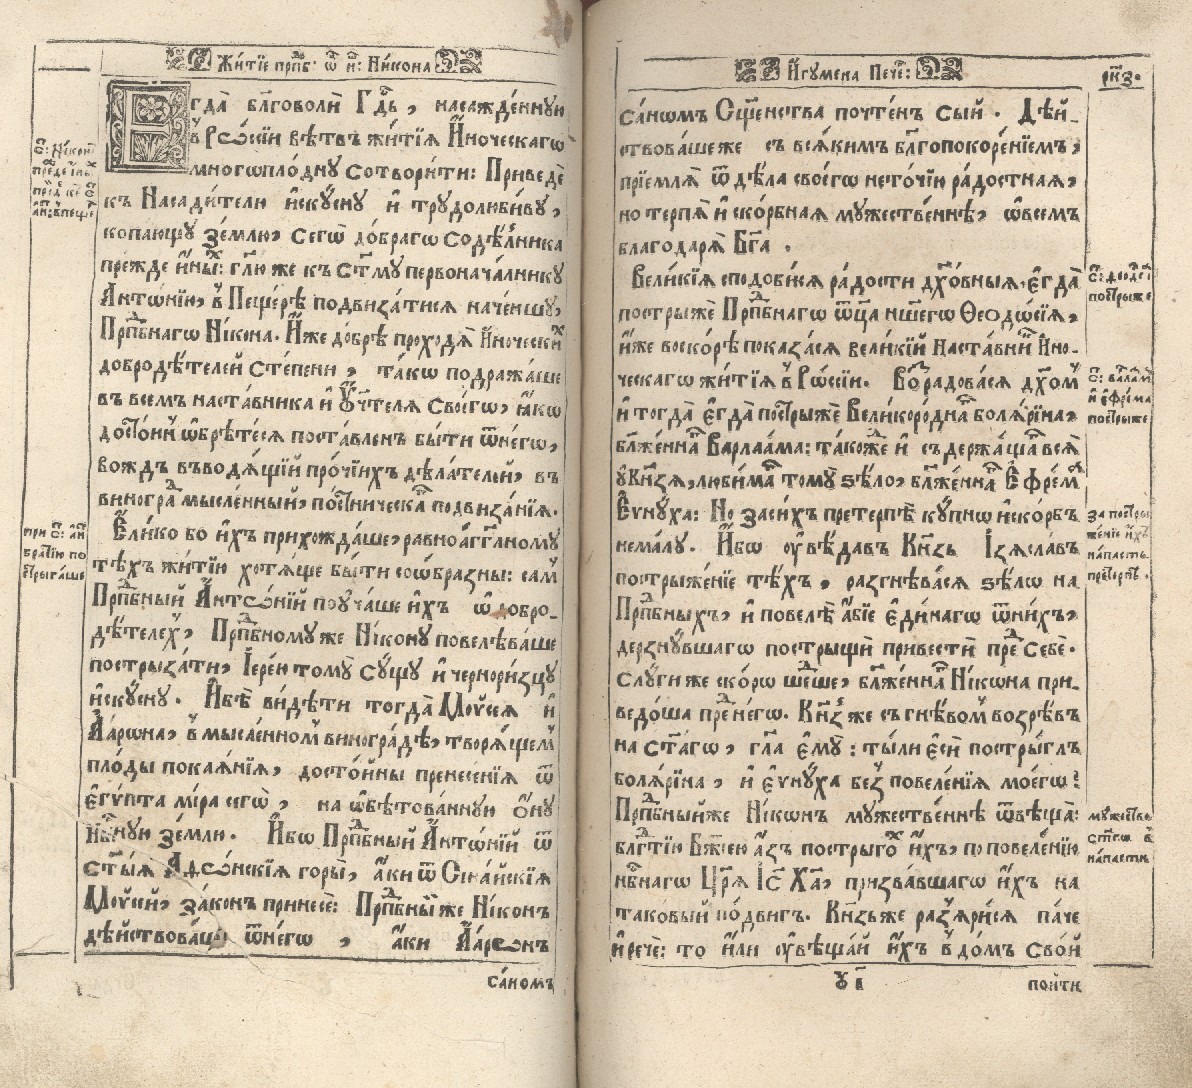 Житїе прпⷣб ѿ н: Нікона
Егда̀ блг҃оволѝ Гдⷭ҇ь, насажде́ннꙋю
в Рѡссїи вѣ́твь жи́тїѧ И҆́ноческагѡ
многоплоднꙋ сотвори́ти: Приведѐ
къ Насади́тели и҆скꙋснꙋ и҆ трꙋдолюби́вꙋ,
копающꙋ зе́млю, сегѡ̀ до́брагѡ содѣ́лника
прежде и҆ны́хъ: глю же къ ст҃мꙋ первонача́лникꙋ
Антѡ́нїю, в̾ Пеще́рѣ подвиза́тисѧ наче́ншꙋ,
Прпⷣбнагѡ Ні́кона. И҆́же до́брѣ проходѧ̀ И҆́ноческиⷯ
добродѣ́телей сте́пени, та́кѡ подража́ше
въ всемъ наста́вника и҆ оу҆чт҃елѧ своегѡ, ꙗ҆́кѡ
досто́инꙋ ѡ҆брѣ́тесѧ поста́вленъ бы́ти ѿ негѡ,
вождъ въводѧ́щїй про́чїихъ дѣ́лателей, въ
виногра́ⷣ мысле́нный, по́стническаⷢ подвиза́нїѧ.
Е҆ли́ко бо и҆́хъ прихожда́ше, равноа́гг҃лномꙋ
тѣ́хъ житїю хотѧ́ще бы́ти соѡ́бразны: саⷨ
Прпⷣбный Анто́нїй поꙋча́ше и҆́хъ ѡ҆ добро-
дѣ́телеⷯ, Прпⷣбномꙋ же Ні́конꙋ повелѣва́ше
пострыза́ти, І҆ере́ю томꙋ̀ сꙋ́щꙋ и҆ черноризцꙋ
и҆скꙋснꙋ. И҆ бѣ̀ ви́дѣти тогда̀ Моѷсеѧ и҆
А҆арѡна, в̾ мысле́нномъ виногра́дѣ, творѧ́щеⷨ
пло́ды покаѧ́нїѧ, досто́йны пренесе́нїѧ ѿ
е҆гѵпта ми́ра сегѡ̀, на ѡ҆бѣтова́ннꙋю о҆нꙋ
нбⷭ҇нꙋю зе́млю. И҆бѡ Прпⷣбный А҆нтѡ́нїй ѿ
ст҃ы́ѧ Аѳѡнскїѧ горы̀, а҆́ки ѿ Сїна́йскїѧ
Моѷсей, зако́нъ принесѐ: Прпⷣбный же Ні́конъ
дѣ́йствова́ше ѿ негѡ, а҆́ки А҆арѡнъ
са́номъ
с: Ні́конⷩ
при с: аⷩт
бра́тїю по
стрыга́ше
И҆гꙋмена Пече: рн҃з.
са́номъ Сщ҃е́нства почте́нъ сый. Дѣ́й-
ствова́ше же съ всѧ́кимъ блг҃опокоре́нїемъ,
прїе́млѧ ѿ дѣ́ла своегѡ не то́чїю ра́достнаѧ,
но терпѧ̀ и҆ ско́рбнаѧ мꙋ́жественнѣ, ѡ҆ всемъ
благодарѧ̀ Бг҃а.
Вели́кїѧ сподо́бисѧ ра́дости дх҃о́вныѧ, е҆гда̀
пострижѐ Прпⷣбнагѡ ѿц҃а нш҃егѡ Ѳеодѡ́сїѧ,
и҆́же вскорѣ показа́сѧ вели́кїй Наста́вниⷦ И҆но-
ческагѡ жи́тїѧ в̾ Рѡ́ссїи. Воⷥра́довасѧ дх҃омꙋ
и҆ тогда̀ е҆гда̀ постры́жѐ Вели́кородна болѧ́рїна,
блж҃енна Варлаа́ма: тако́же и҆ съдержа́ща всѧ̀
ꙋ҆ Кн҃зѧ, люби́ма томꙋ̀ ѕѣло, блж҃енна Е҆фрем
Е҆ѵнꙋ́ха: Но за си́хъ претерпѣ̀ кꙋ́пнѡ и҆ско́рбь
нема́лꙋ. И҆́бѡ оу҆вѣ́давъ Кн҃зь І҆зѧсла́въ
постриже́нїе тѣ́хъ, разгнѣ́васѧ ѕѣ́лѡ на
Прпⷣбныхъ, и҆ повелѣ̀ а҆́бїе е҆ди́нагѡ ѿ ни́хъ,
дерзнꙋ́вшагѡ пострищѝ привести́ преⷣ себѐ.
Слꙋ́ги же ско́рѡ ше́ⷣше, блж҃енна Ні́кѡна при-
ведо́ша преⷣ негѡ. Кн҃зь же съ гнѣ́вомъ возрѣ́въ
на ст҃агѡ, гл҃а е҆мꙋ̀: ты́ ли е҆сѝ постри́глъ
болѧ́рїна, и҆ е҆ѵнꙋ́ха беⷥ повеле́нїѧ моегѡ̀?
Прпⷣбный же Ні́кѡнъ мꙋ́жественнѣ ѿвѣща̀:
блг҃тїю Бж҃їею а҆́зъ постриго́хъ и҆́хъ, по повеле́нїю
нбⷭ҇нагѡ Цр҃ѧ І҆с҃ Ха҃, призва́вшагѡ и҆́хъ на
тако́вый по́двигъ. Кн҃зь же разъѧ́рисѧ паче
и҆ речѐ: то и҆́ли оу҆вѣща́й и҆́хъ в̾ до́мъ сво́й
ꙋ в҃ пойти
с: ѳеодо́сїѧ
постры́же
с: варлаам
и҆ е҆фре́ма
постры́же
за постры
же́нїе и҆хъ
напасть
претерпѣ.
мꙋжество
ст҃гѡ в
напасти